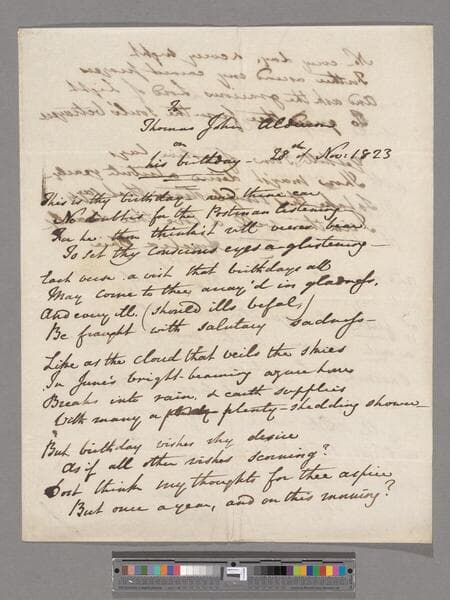 To
Thomas John Alderson
on
his birthday - 28th of Nov: 1823
This is thy birthday and thine ear
No doubt is for the Postman listening
For he thou think'st will verses bear
To set thy conscious eyes a glistening -
Each verse a wish that birthdays all
May come to thee array'd in gladness,
And every ill (should ills befal)
Be fraught with salutary sadness -
Like as the cloud that veils the skies
In June's bright-beaming azure hour
Breaks into rain, & earth supplies
With many a plenty-shedding shower -
But birthday wishes why desire
As if all other wishes scorning?
Dost think my thoughts for thee aspire
But once a year, and on this morning?